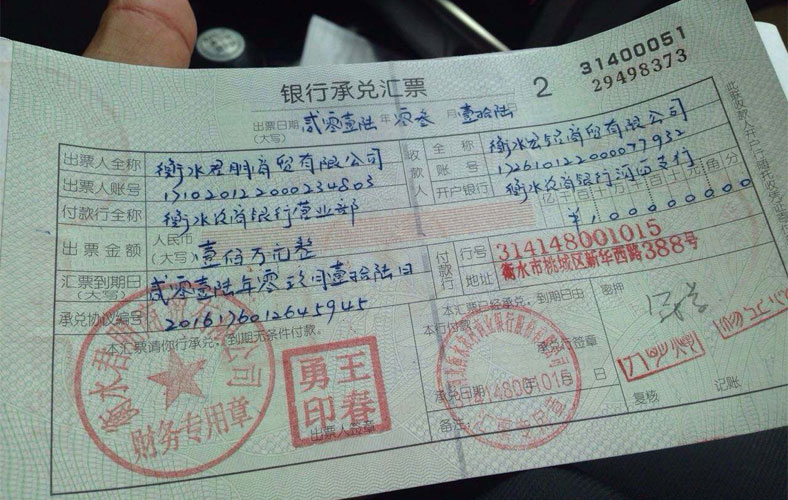 银行承兑汇票
2
31400051
29498373
出票日期
(大写)
贰零壹陆 年 零叁 月 壹拾陆 日
出票人全称 衡水君明商贸有限公司
出票人账号 171020122000234803
付款行全称 衡水农商银行营业部
收款人
全称 商贸有限公司
账号
开户银行 衡水农商银行河西支行
出票金额 人民币
(大写) 壹佰万元整
亿千百十万千百十元角分
¥100000000
汇票到期日
(大写) 贰零壹陆年零玖月壹拾陆日
付款行
行号 314148001015
地址 衡水市桃城区新华西路388号
承兑协议编号 2016176012645945
本汇票请你行承兑,到期无条件付款。
本汇票已经承兑,到期日由
本行付款
承兑行签章
承兑日期 年 月 日
备注:
密押
复核 记账
出票人签章
财务专用章
王春勇印
314148001015